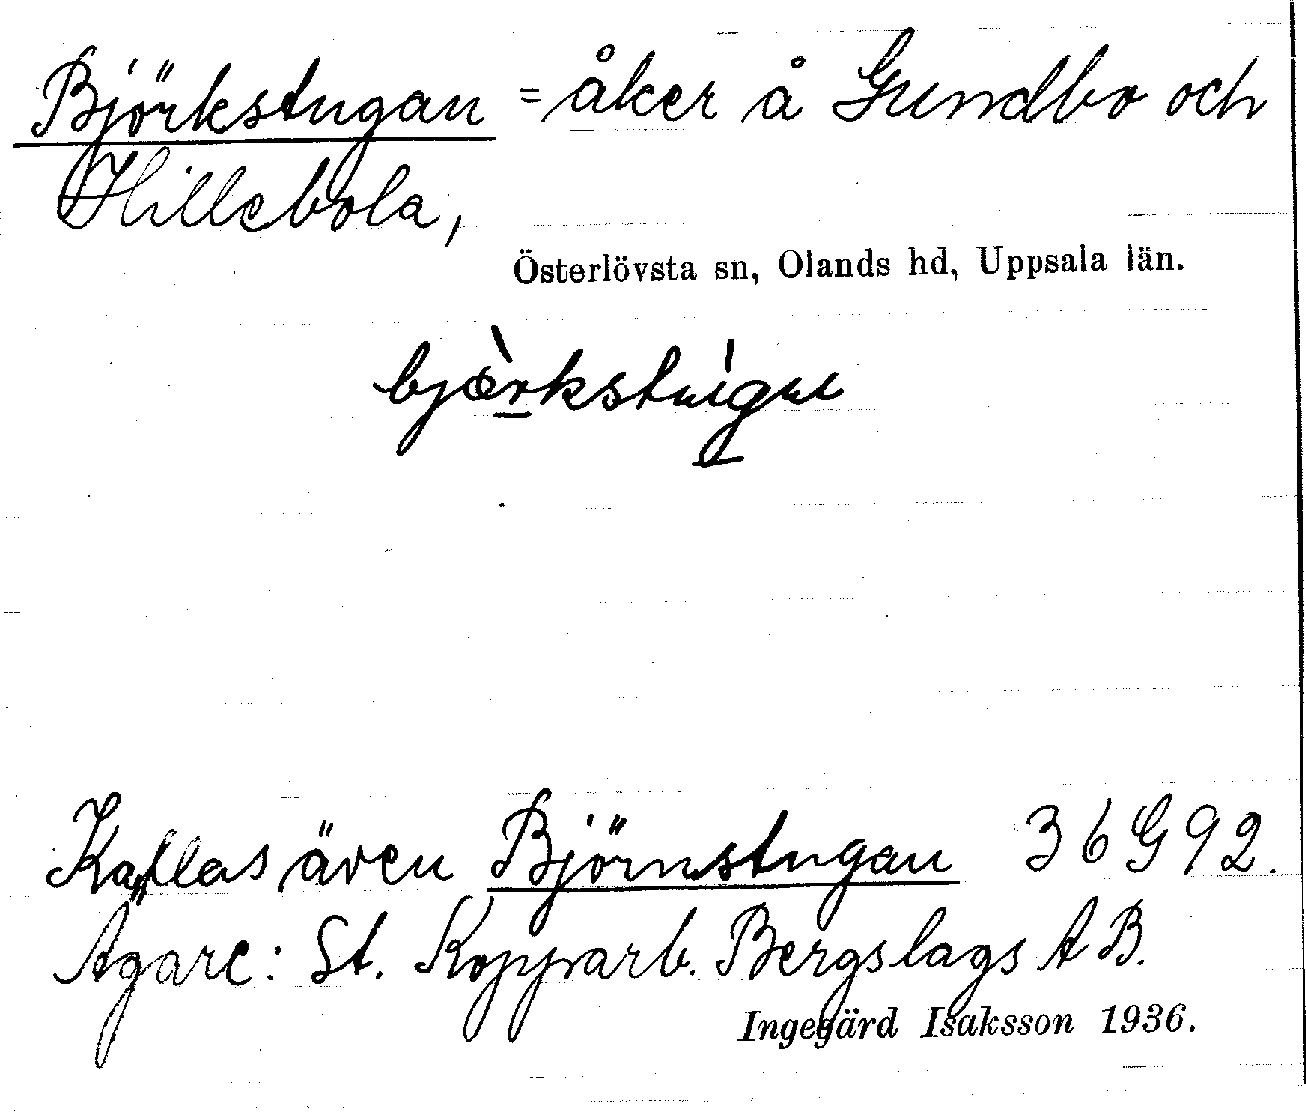 Björkstugan = åker å Gundbo och
Hillebola,
Österlövsta sn, Olands hd, Uppsala län.
Kallas även Björnstugan 36G92.
Ägare: St. Kopparb. Bergslags AB.
Ingegärd Isaksson 1936.